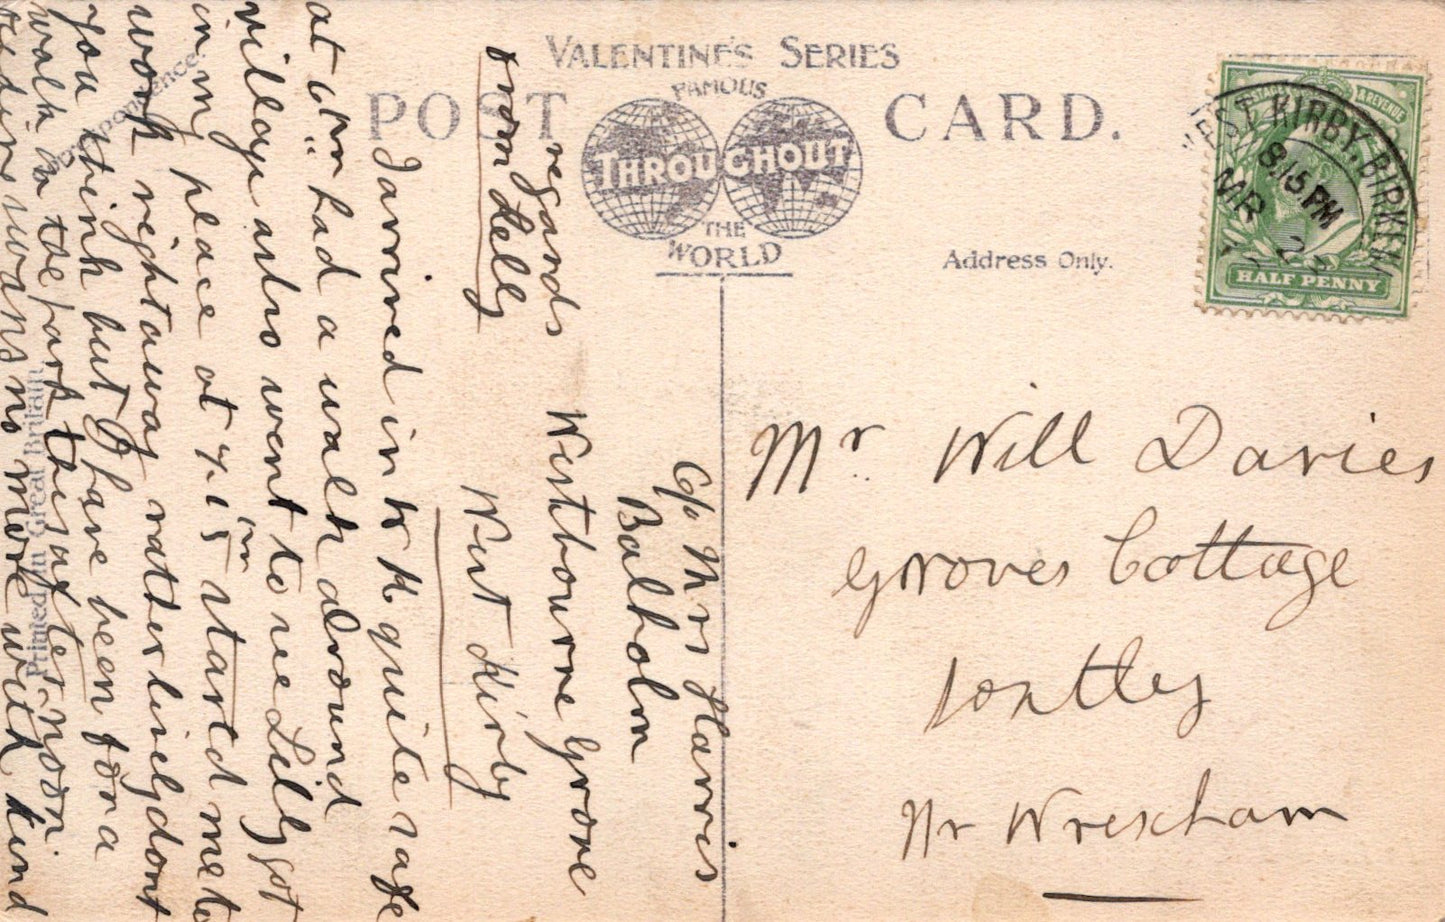 VALENTINE'S SERIES
FAMOUS
POST CARD.
THROUGHOUT
THE
WORLD
Address Only.
Correspondence.
Printed in Great Britain
POSTAGE & REVENUE
HALF PENNY
WEST KIRBY. BIRKEN
8.15 PM
MR
Mr Will Davies
Groves Cottage
Nr Wrexham
C/o Mrs Harris
Balholm
Westbourne Grove
West Kirby
I arrived in W K quite safe
at 6 pm had a walk around
village also went to see Lilly got
in my place at 7.15 pm started me to
work rightaway rather lively dont
you think but I have been for a
walk on the park this afternoon.
no more with kind
regards
from Lelly